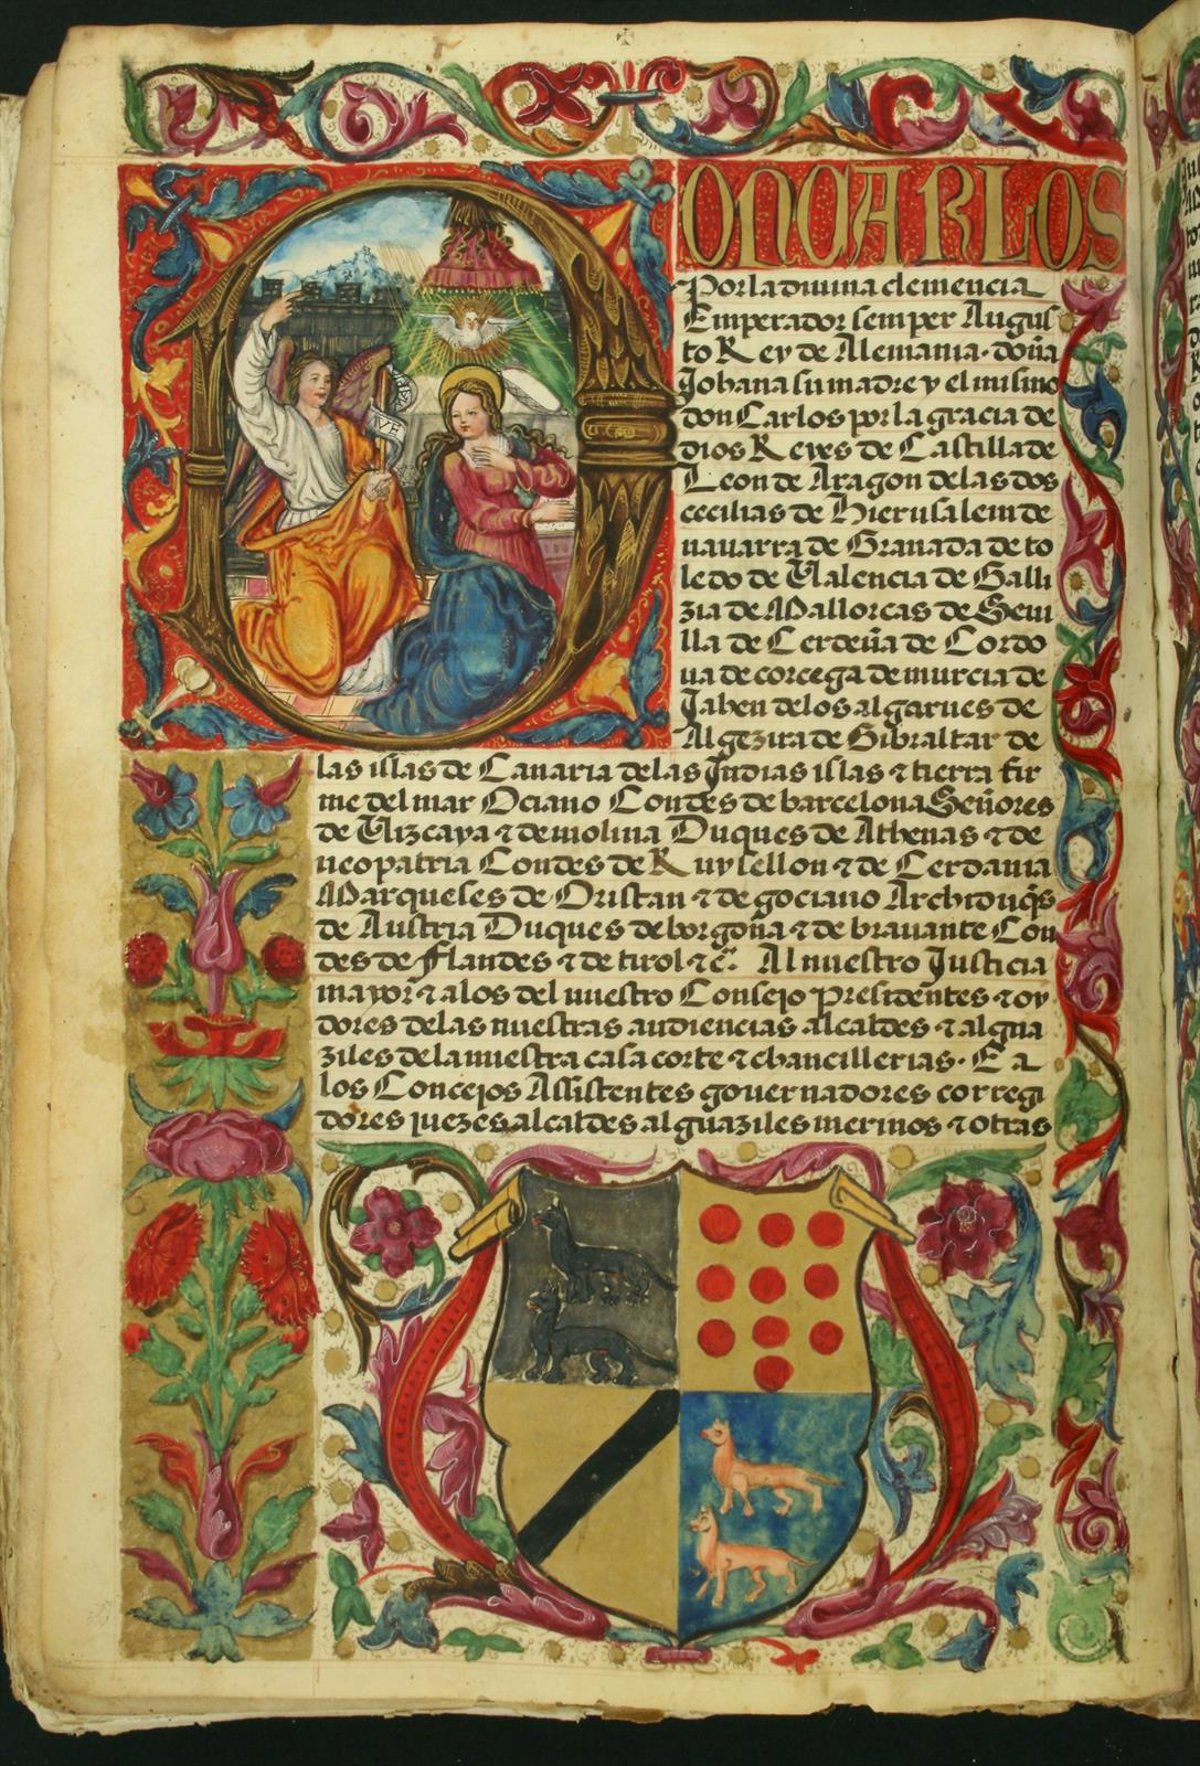 DON CARLOS
Por la diuina clemencia
Emperador semper Augus
to Rey de Alemania. doña
Johana su madre y el mismo
don Carlos por la gracia de
dios Reyes de Castilla de
Leon de Aragon de las dos
cecilias de Hierusalem de
nauarra de Granada de to
ledo de Valencia de Galli
zia de Mallorcas de Seui
lla de Cerdeña de Cordo
ua de corcega de murcia de
Jahen de los algarues de
Algezira de Gibraltar de
las islas de Canaria de las Jndias islas ⁊ tierra fir
me del marOciano Condes de barcelona Señores
de Vizcaya ⁊ de molina Duques de Athenas ⁊ de
neopatria Condes de Ruysellon ⁊ de Cerdania
Marqueses de Oristan ⁊ de gociano Archiduq̄s
de Austria Duques de borgoña ⁊ de brauante Con
des de Flandes ⁊ de tirol ⁊ c̄. Al nuestro Justicia
mayor ⁊ a los del nuestro Consejo presidentes ⁊ oy
dores de las nuestras audiencias alcaldes ⁊ algua
ziles de la nuestra casa corte ⁊ chancillerias. E a
los Concejos Assistentes gouernadores corregi
dores juezes alcaldes alguaziles merinos ⁊ otras
AVE